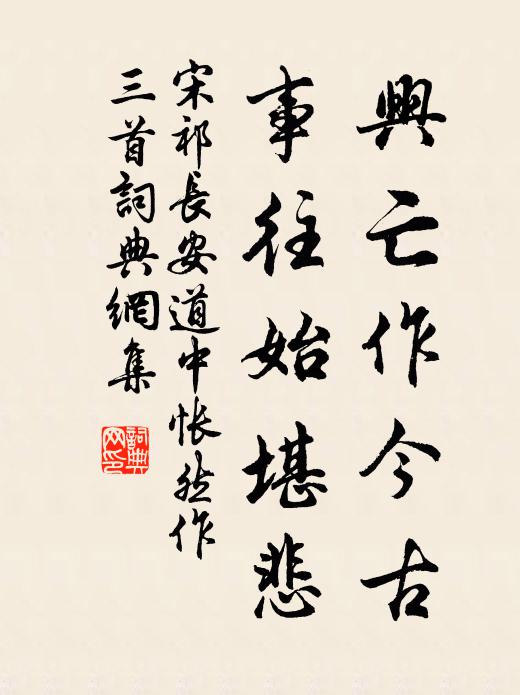 興亡作今古
事往始堪悲
宋祁長安道中悵然作
三首詞典網集
詞典網印